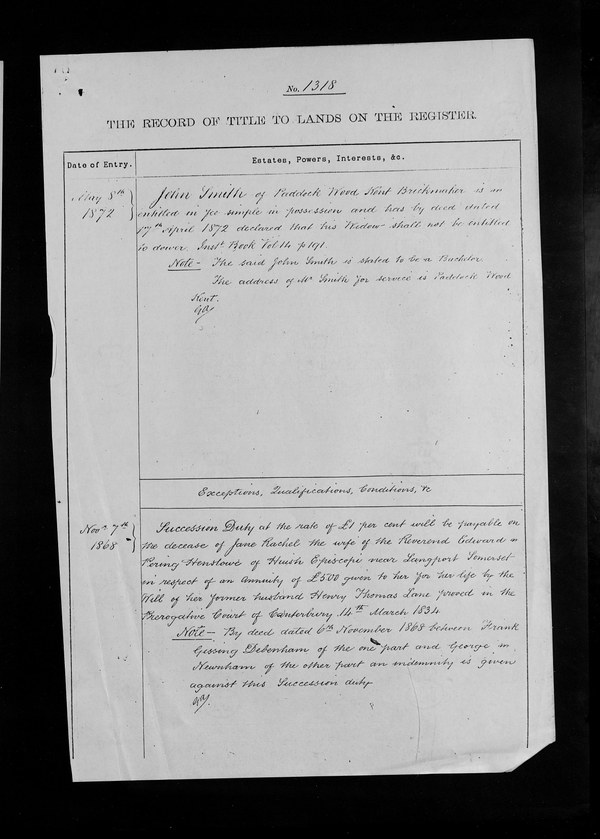 No. 1318
THE RECORD OF TITLE TO LANDS ON THE REGISTER.
Date of Entry.
Estates, Powers, Interests, &c.
May 8th
1872
John Smith of Paddock Wood Kent Brickmaker is an
entitled in fee simple in possession and has by deed dated
17th April 1872 declared that his Widow shall not be entitled
to dower. Inst. Book Vol 14 p 191.
Note - The said John Smith is stated to be a Bachelor
The address of Mr Smith for service is Paddock Wood
Kent.
Exceptions, Qualifications, Conditions, &c
Novr. 7th
1868
Succession Duty at the rate of £1 per cent will be payable on
the decease of Jane Rachel the wife of the Reverend Edward
Henslowe of Huish Episcopi near Langport Somerset
in respect of an Annuity of £500 given to her for her life by the
Will of her former husband Henry Thomas Lane proved in the
Prerogative Court of Canterbury 14th March 1834
Note - By deed dated 6th November 1868 between Frank
Gissing Debenham of the one part and George
Newnham of the other part an indemnity is given
against this Succession duty